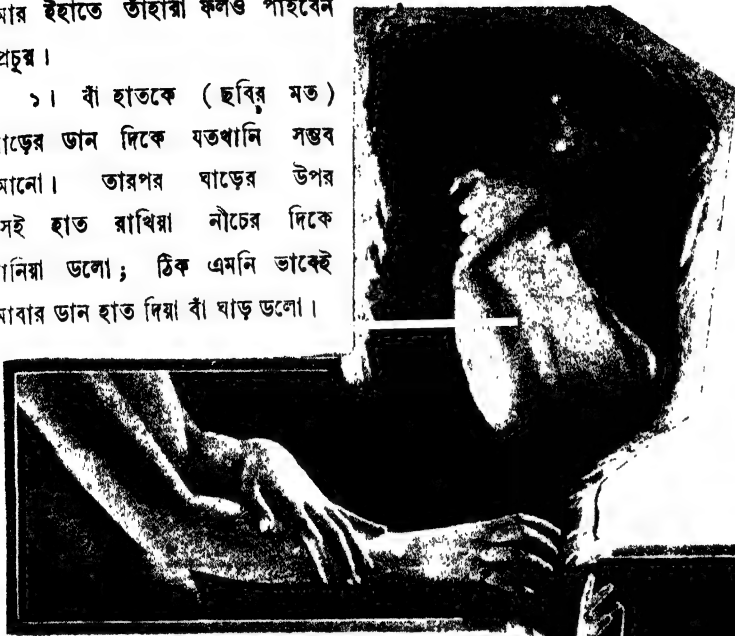 মার ইহাতে তাঁহারা ফলও পাইবেন
প্রচুর।
১। বাঁ হাতকে (ছবির মত)
াড়ের ডান দিকে যতখানি সম্ভব
মানো। তারপর ঘাড়ের উপর
সই হাত রাখিয়া নীচের দিকে
ানিয়া ডলো; ঠিক এমনি ভাবেই
মাবার ডান হাত দিয়া বাঁ ঘাড় ডলো।